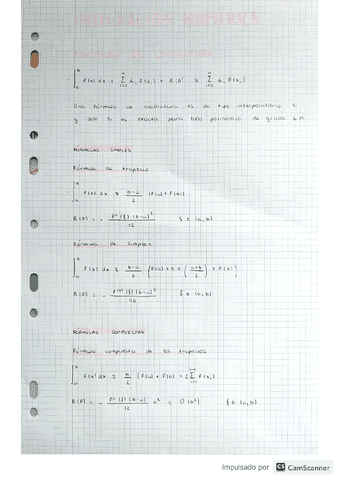 INTEGRACIÓN NUMÉRICA
FÓRMULAS DE CUADRATURA
∫ₐᵇ f(x) dx = Σᵢ₌₀ⁿ αᵢ f(xᵢ) + R(f) ≈ Σᵢ₌₀ⁿ αᵢ f(xᵢ)
Una fórmula de cuadratura es de tipo interpolatorio si
y solo si es exacta para todo polinomio de grado ≤ n.
FÓRMULAS SIMPLES
Fórmula de trapecio
∫ₐᵇ f(x) dx ≈ (b-a)/2 (f(a) + f(b))
R(f) = - f''(ξ)(b-a)³/12 ξ ∈ (a,b)
Fórmula de Simpson
∫ₐᵇ f(x) dx ≈ (b-a)/6 (f(a) + 4 f((a+b)/2) + f(b))
R(f) = - ξ ∈ (a,b)
FÓRMULAS COMPUESTAS
Fórmula compuesta de los trapecios
∫ₐᵇ f(x) dx ≈ h/2 (f(a) + f(b) + 2 Σ f(xᵢ)
R(f) = - f''(ξ)(b-a)/12 h² = O(h²) ξ ∈ (a,b)
Impulsado por CS CamScanner